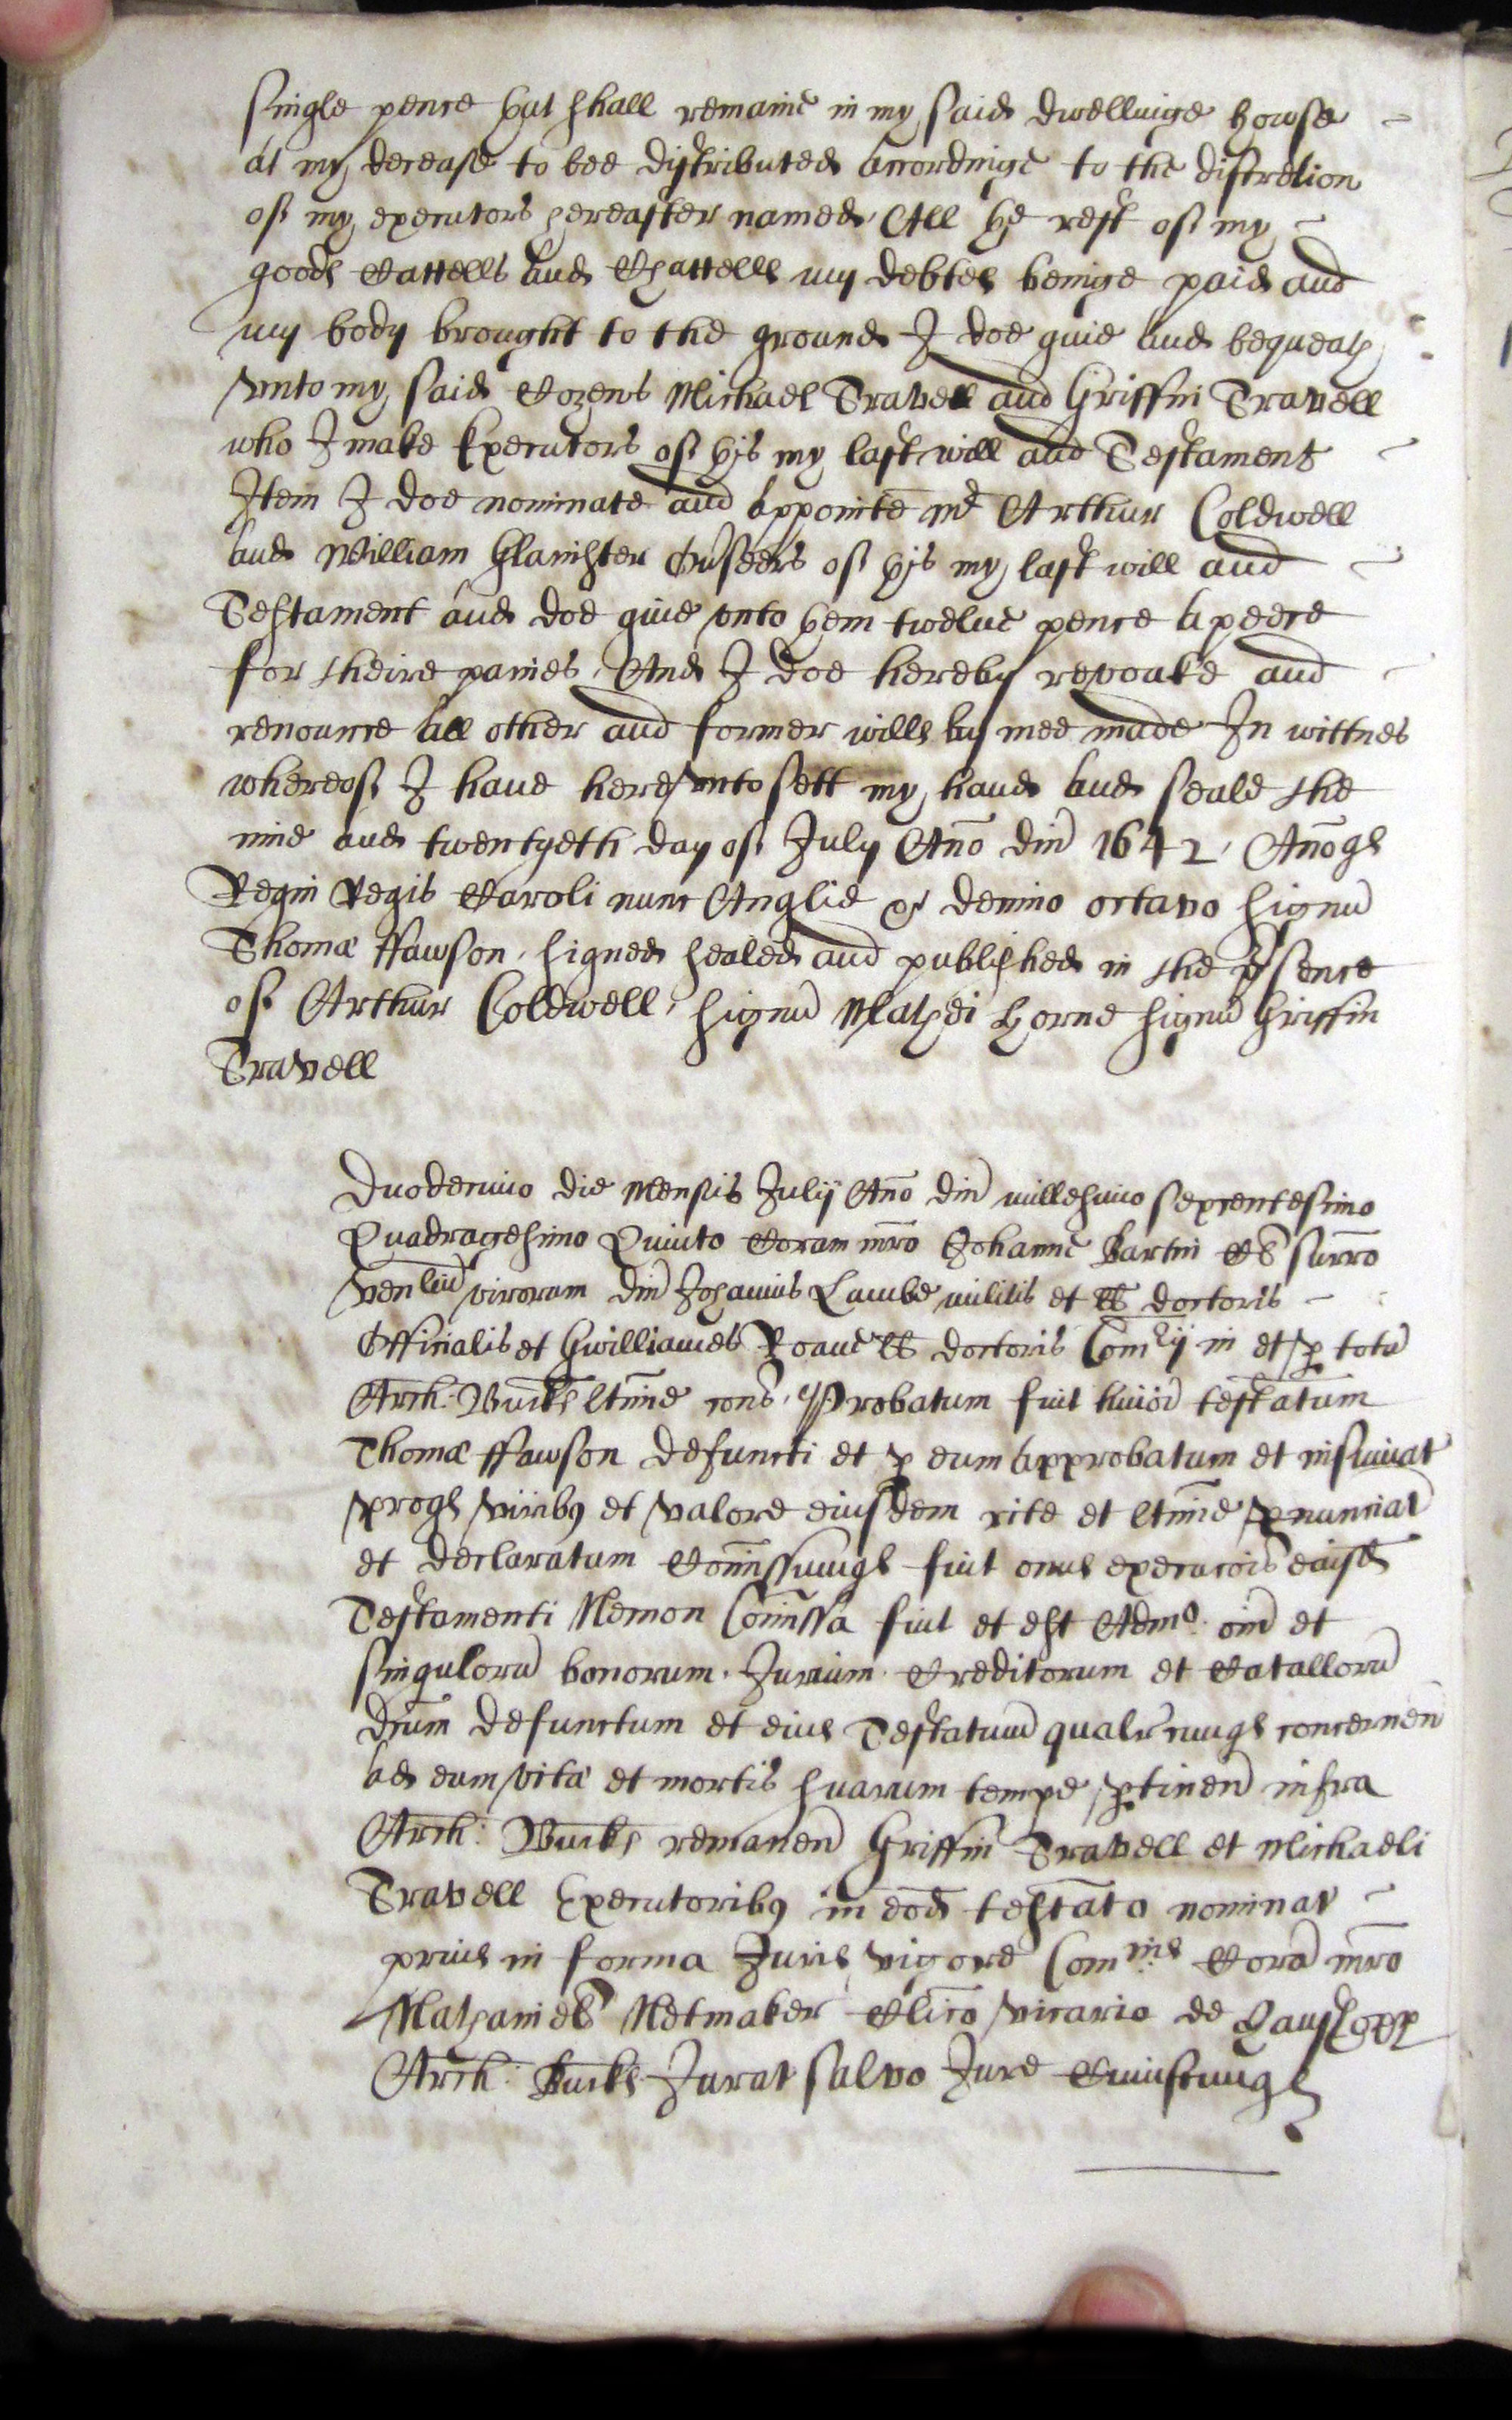 single pence that shall remaine in my said dwellinge howse
at my decease to bee distributed accordinge to the discretion
of my executors hereafter named, All the rest of my
goods Cattells and Chattells my debtes beinge paid and
my body brought to the ground I doe give and bequeath
unto my said Cozens Michael Travell and Griffin Travell
who I make Executors of this my last will and Testament
Item I doe nominate and appointe Mr Arthur Coldwell
and William Ov'seers of this my last will and
Testament and doe give unto them twelve pence a peece
for theire paines, And I doe hereby revoake and
renounce all other and former wills by mee made In wittnes
whereof I have hereunto sett my hand and seale the
nine and twentyeth day of July Ano dni 1642, Anoq
Regni Regis Caroli nunc Anglie &c decimo octavo signu
Thomæ ffawson, signed sealed and published in the p'sence
of Arthur Coldwell, signu Mathei Horne signu Griffin
Travell
Duodecimo die Mensis Julij Ano dni millesimo sexcentesimo
Quadragesimo Quinto Coram mro Johanne Bartin Cl surro
ven'liu virorum dni Johannis Lambe militis et ll doctoris
Officialis et Gwillielmi Roane ll doctoris Com'rij in et p totu
Arch: Bucks ltime cons, Probatum fuit hmoi testatum
Thomæ ffawson defuncti et p eum approbatum et insinuat
proq viribus et valore eiusdem rite et ltime p'nunciat
et declaratum Comissumq fuit onus execucois eiusd
Testamenti Necnon Comissa fuit et est Admo. oim et
singuloru bonorum Jurium Creditorum et Catalloru
dcum defunctum et eius Testatum qualr'cunq concernen
ad eum vitæ et mortis suarum tempe p'tinen infra
Arch: Bucks remanen Griffin Travell et Michaeli
Travell Executoribus in eod testato nominat
prius in forma Juris vigore Com'nis Cora mro
Nathaniel Netmaker Clico vicario de
Arch: Bucks Jurat salvo Jure Cuiuscunq